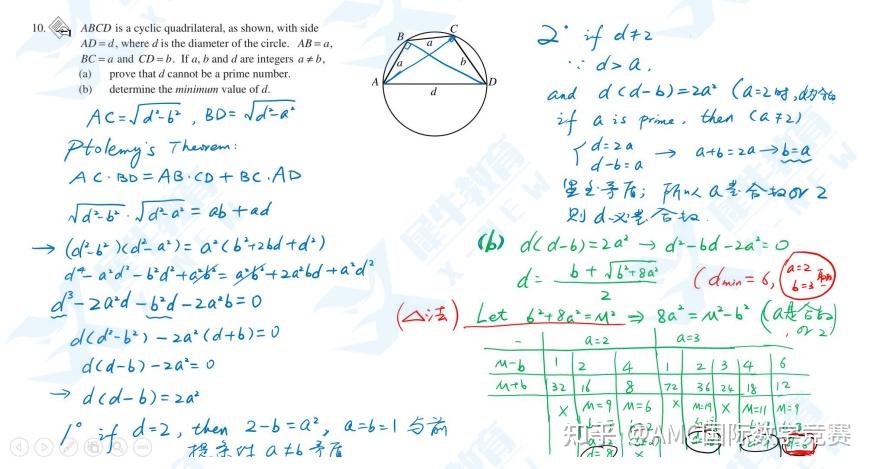 10. ABCD is a cyclic quadrilateral, as shown, with side
AD = d, where d is the diameter of the circle. AB = a,
BC = a and CD = b. If a, b and d are integers a ≠ b,
(a) prove that d cannot be a prime number.
(b) determine the minimum value of d.
A B C D a a b d
AC=√d²-b² , BD=√d²-a²
Ptolemy's Theorem:
AC·BD=AB·CD+BC·AD
√d²-b² · √d²-a² = ab+ad
→ (d²-b²)(d²-a²) = a²(b²+2bd+d²)
d⁴-a²d²-b²d²+a²b² = a²b²+2a²bd+a²d²
d³-2a²d-b²d-2a²b=0
d(d²-b²)-2a²(d+b)=0
d(d-b)-2a²=0
→ d(d-b)=2a²
1° if d=2, then 2-b=a², a=b=1 与前
提条件 a≠b 矛盾
2° if d≠2
∵ d>a,
and d(d-b)=2a² (a=2时,d为合
if a is prime, then (a≠2)
{ d=2a
d-b=a → a+b=2a → b=a
矛盾; 所以 a是合数or 2
则 d 必是合数.
(b) d(d-b)=2a² → d²-bd-2a²=0
d= b+√b²+8a² / 2 (dmin=6, a=2 b=3
(△法) Let b²+8a²=M² ⇒ 8a²=M²-b² (a是合数, or 2)
- a=2 a=3
M-b 1 2 4 1 2 3 4 6
M+b 32 16 8 72 36 24 18 12
X M=9 M=6 X M=19 X M=11 M=9
d=8
知乎 @AMC国际数学竞赛
犀牛教育